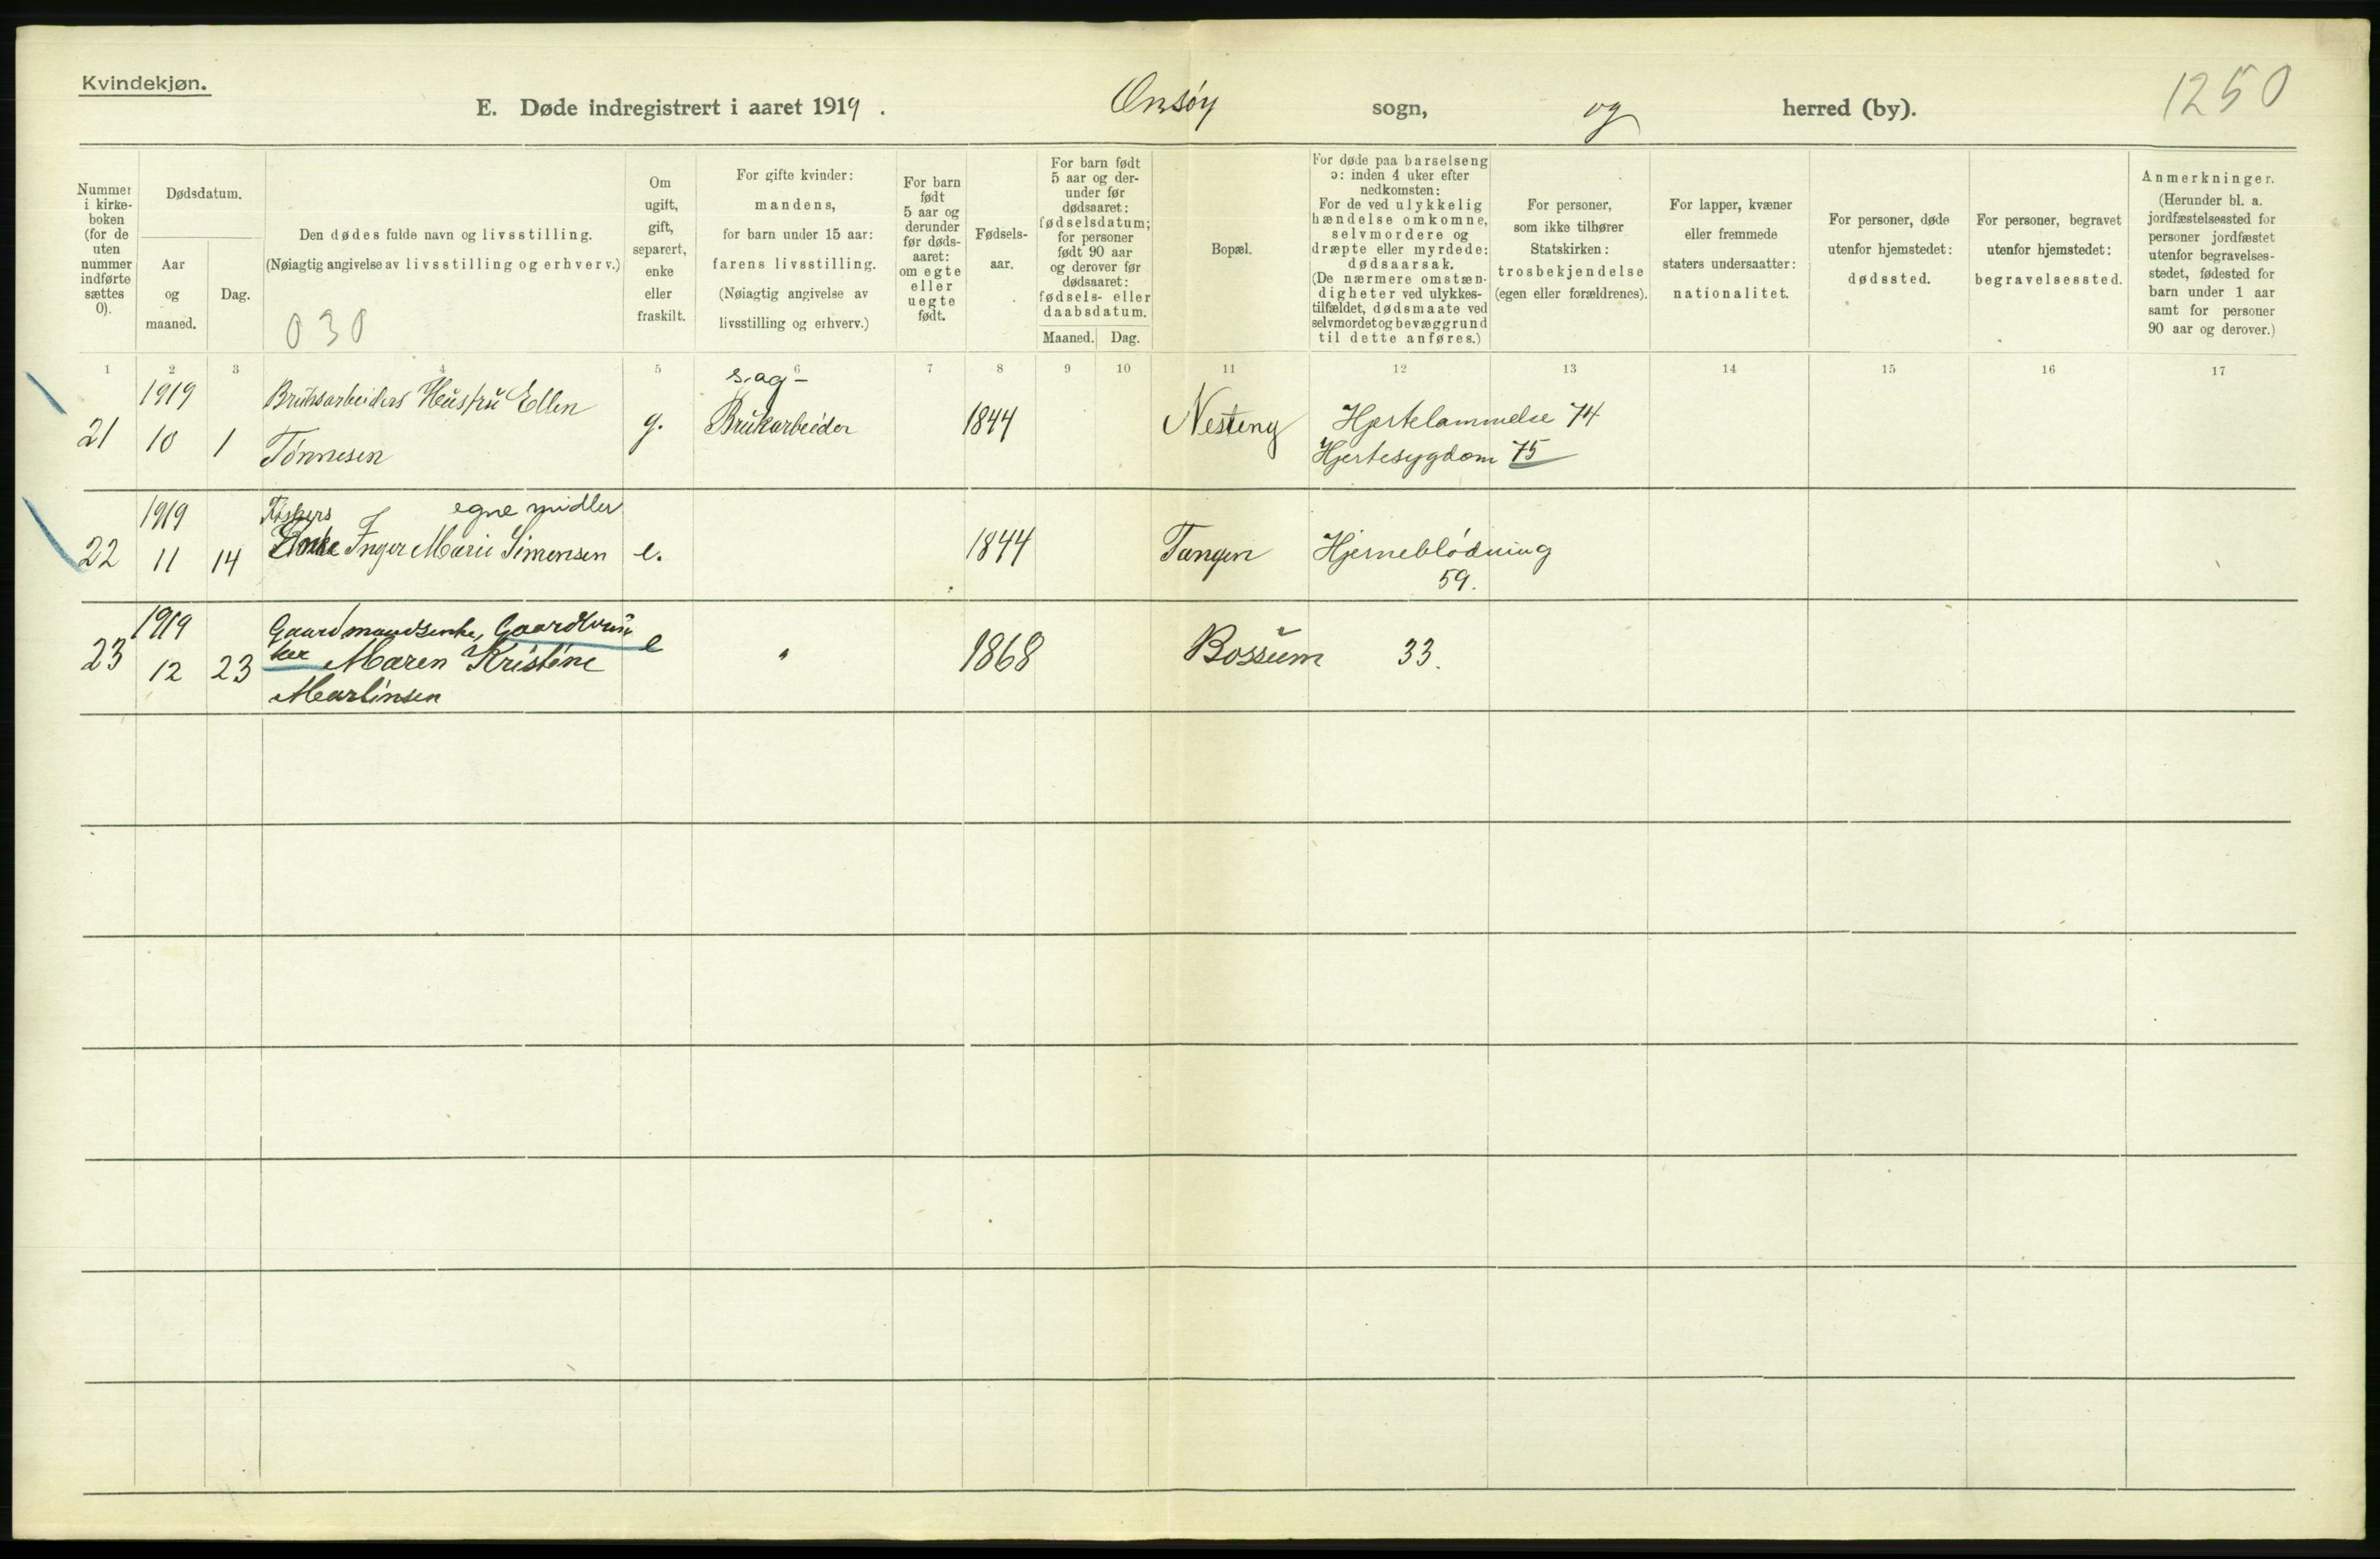 Kvindekjøn.
E. Døde indregistrert i aaret 1919. Onsøy sogn, og herred (by).
1250
Nummer i kirkeboken (for de uten nummer indførte sættes 0).
Dødsdatum.
Aar og maaned.
Dag.
Den dødes fulde navn og livsstilling.
(Nøiagtig angivelse av livsstilling og erhverv.)
030
Om ugift, gift, separert, enke eller fraskilt.
For gifte kvinder: mandens, for barn under 15 aar: farens livsstilling.
(Nøiagtig angivelse av livsstilling og erhverv.)
For barn født 5 aar og derunder før dødsaaret: om egte eller uegte født.
Fødselsaar.
For barn født 5 aar og derunder før dødsaaret: fødselsdatum; for personer født 90 aar og derover før dødsaaret: fødsels- eller daabsdatum.
Maaned. Dag.
Bopæl.
For døde paa barselseng ɔ: inden 4 uker efter nedkomsten: For de ved ulykkelig hændelse omkomne, selvmordere og dræpte eller myrdede: dødsaarsak.
(De nærmere omstændigheter ved ulykkestilfældet, dødsmaate ved selvmordet og bevæggrund til dette anføres.)
For personer, som ikke tilhører Statskirken: trosbekjendelse (egen eller forældrenes).
For lapper, kvæner eller fremmede staters undersaatter: nationalitet.
For personer, døde utenfor hjemstedet: dødssted.
For personer, begravet utenfor hjemstedet: begravelsessted.
Anmerkninger.
(Herunder bl. a. jordfæstelsessted for personer jordfæstet utenfor begravelsesstedet, fødested for barn under 1 aar samt for personer 90 aar og derover.)
1 2 3 4 5 6 7 8 9 10 11 12 13 14 15 16 17
1919 Bruksarbeiders Hustru Ellen sag-
21 10 1 Tønnesen g. Brukarbeider 1844 Nesteng Hjertelammelse 74
Hjertesygdom 75
1919 Fiskers egne midler
22 11 14 Enke Inger Marie Simensen e. 1844 Tangen Hjerneblødning
59.
1919 Gaardmandsenke, Gaardbru
23 12 23 ker Maren Kristine e " 1868 Bossum 33.
Martinsen